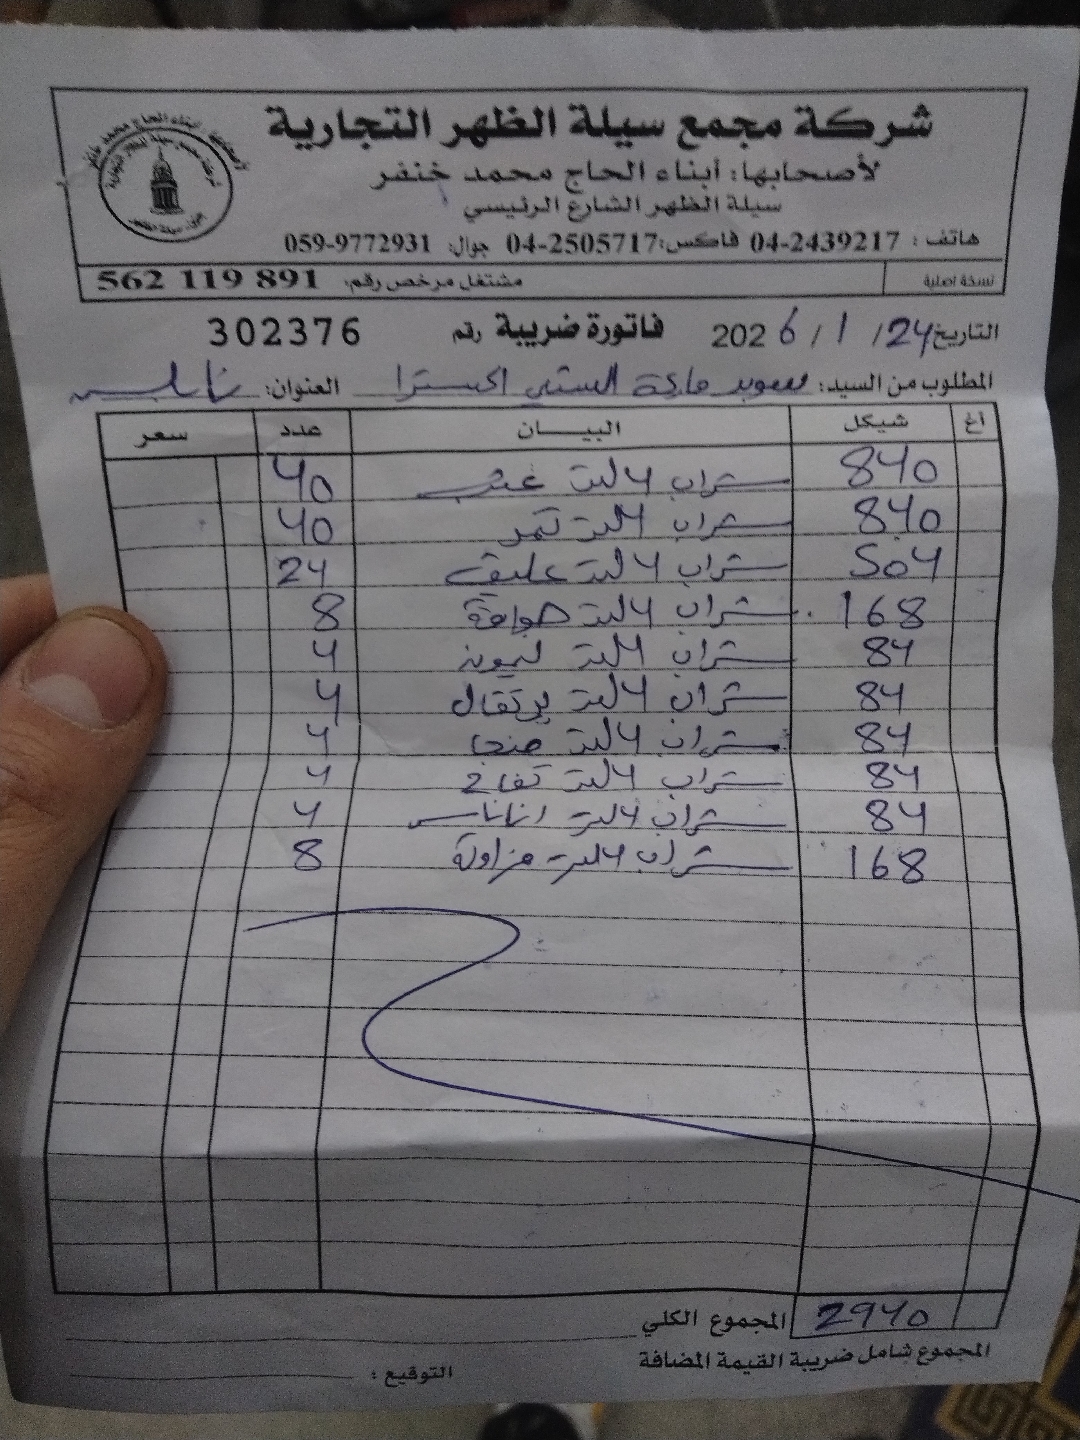 شركة مجمع سيلة الظهر التجارية
لأصحابها: أبناء الحاج محمد خنفر
سيلة الظهر الشارع الرئيسي
هاتف: 04-2439217 فاكس: 04-2505717 جوال: 059-9772931
نسخة اصلية مشتغل مرخص رقم: 562 119 891
التاريخ 24 / 1 / 2026 فاتورة ضريبة رقم 302376
المطلوب من السيد: سوبر ماركة السني اكسترا العنوان: نابلس
اغ شيكل البيـــان عدد سعر
840 شراب 4 لتر عنب 40
840 شراب 4 لتر تمر 40
504 شراب 4 لتر عليق 24
168 شراب 4 لتر جوافة 8
84 شراب 4 لتر ليمونه 4
84 شراب 4 لتر برتقال 4
84 شراب 4 لتر منجا 4
84 شراب 4 لتر تفاح 4
84 شراب 4 لتر اناناس 4
168 شراب 4 لتر فراولة 8
2940 المجموع الكلي
المجموع شامل ضريبة القيمة المضافة
التوقيع :